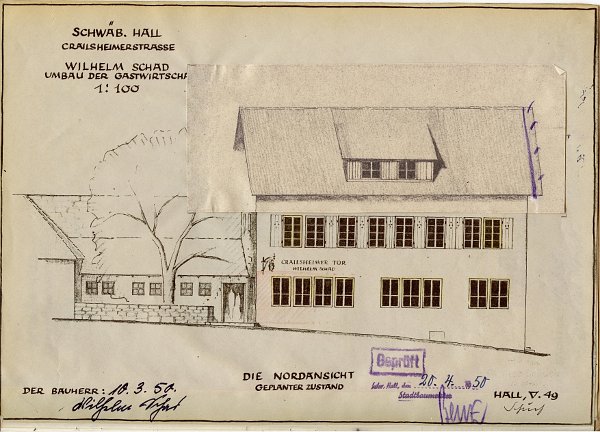 SCHWÄB. HALL
CRAILSHEIMERSTRASSE
WILHELM SCHAD
UMBAU DER GASTWIRTSCHA
1:100
CRAILSHEIMER TOR
WILHELM SCHAD
DIE NORDANSICHT
GEPLANTER ZUSTAND
DER BAUHERR: 18.3.50.
Wilhelm Schad
Geprüft
Schw. Hall, den 20. 4. 1950
Stadtbaumeister
HALL, V. 49